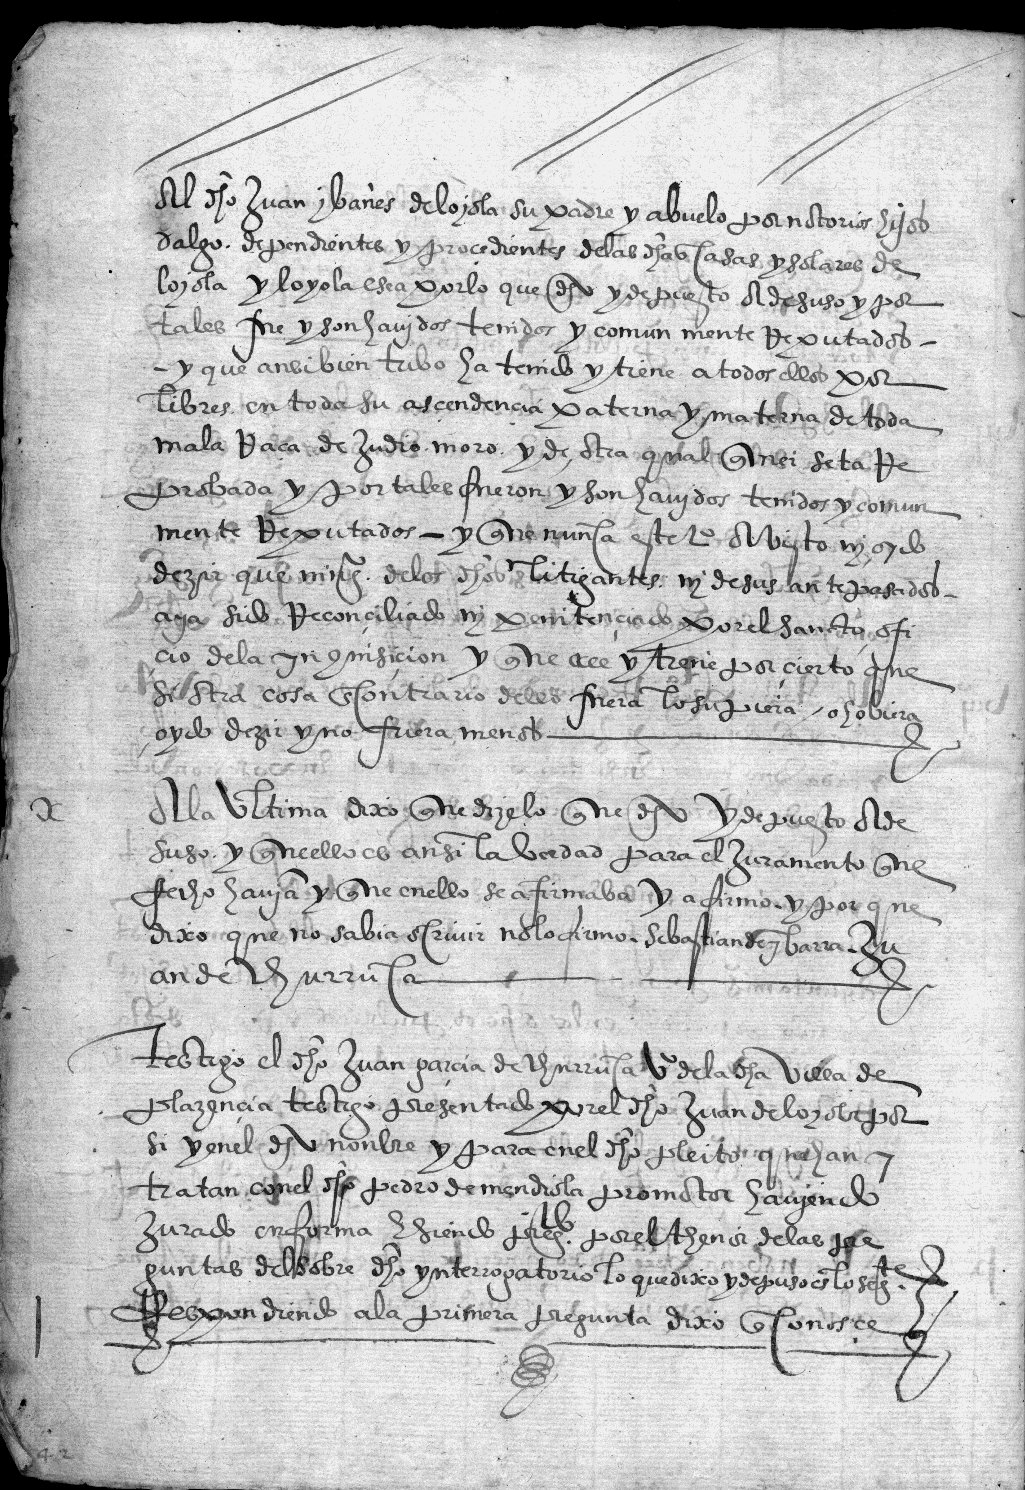 Al dho Juan ybañes de loyola su padre y abuelo por notorios hijos
dalgo. dependientes y procedientes delas dhas casas y solares de
loyola y loyola esea por lo que dho y depuesto A de suso y por
tales fue y son havidos tenidos y comun mente Reputados -
- y que ansi bien tubo ha tenido y tiene a todos ellos por
libres en toda su ascendencia paterna y materna de toda
mala Raça de Judio. moro. y de otra qual quier seta Re
probada y por tales fueron y son havidos tenidos y comun
mente Reputados - y que nunca este to A visto ny oydo
dezir que ning. delos dhos litigantes ny de sus antepasados -
aya sido Reconciliado ny penitenciado por el sancto ofi
cio dela ynquisicion y que cree y tiene por cierto que
si otra cosa En contrario dello fuera lo supiera / o hobiera
oydo dezir y no fuera menos
x Ala Ultima dixo que dize lo que dho y depuesto A de
suso. y que ello es ansi la verdad para el Juramento que
fecho havia y que en ello se afirmaba y afirmo. y por que
dixo que no sabia escrivir no lo firmo. sebastian de ybarra. Ju
an de churruca
testigo el dho Juan garcia de churruca vo dela dha villa de
plazençia testigo presentado por el dho Juan de loyola por
si y en el dho nonbre y para en el dho pleito que han y
tratan con el dho pedro de mendiola promotor haviendo
Jurado en forma E siendo pregdo. por el thenor delas pre
guntas del sobre dho ynterrogatorio lo que dixo y depuso es lo segte.
Respondiendo a la primera pregunta dixo q conosce
42